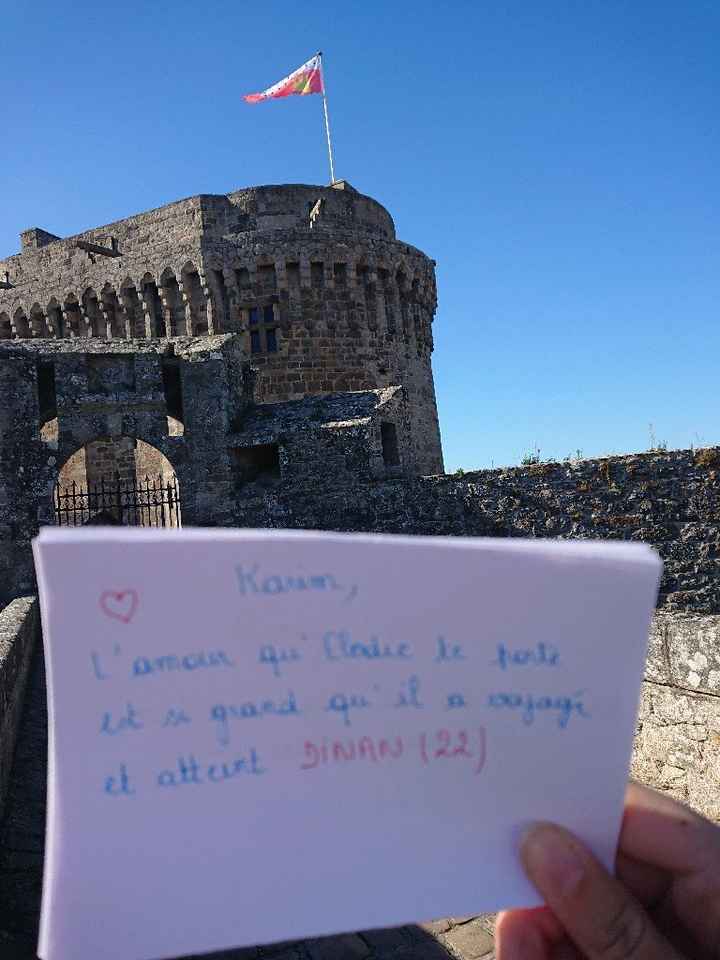 Karim,
L'amour qu'Elodie te porte
est si grand qu'il a voyagé
et atteint DINAN (22)